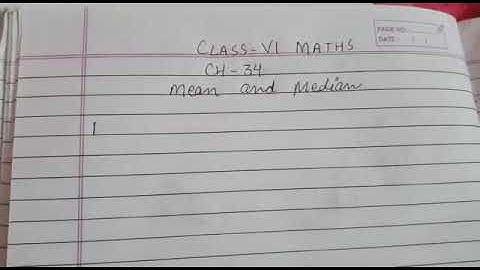 PAGE NO.:
DATE: / /
CLASS-VI MATHS
CH-34
Mean and Median